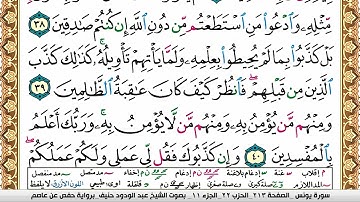 مِّثْلِهِۦ وَٱدْعُوا۟ مَنِ ٱسْتَطَعْتُم مِّن دُونِ ٱللَّهِ إِن كُنتُمْ صَٰدِقِينَ ٣٨
بَلْ كَذَّبُوا۟ بِمَا لَمْ يُحِيطُوا۟ بِعِلْمِهِۦ وَلَمَّا يَأْتِهِمْ تَأْوِيلُهُۥ ۚ كَذَٰلِكَ كَذَّبَ
ٱلَّذِينَ مِن قَبْلِهِمْ ۖ فَٱنظُرْ كَيْفَ كَانَ عَٰقِبَةُ ٱلظَّٰلِمِينَ ٣٩
وَمِنْهُم مَّن يُؤْمِنُ بِهِۦ وَمِنْهُم مَّن لَّا يُؤْمِنُ بِهِۦ ۚ وَرَبُّكَ أَعْلَمُ
بِٱلْمُفْسِدِينَ ٤٠ وَإِن كَذَّبُوكَ فَقُل لِّى عَمَلِى وَلَكُمْ عَمَلُكُمْ ۖ
م إقلاب غنة إدغام بلاغنة إدغام إخفاء
المد اللازم صلة كبرى
اللون الأزرق لايلفظ
سورة يونس الصفحة ٢١٣ الحزب ٢٢ الجزء ١١ بصوت الشيخ عبد الودود حنيف برواية حفص عن عاصم